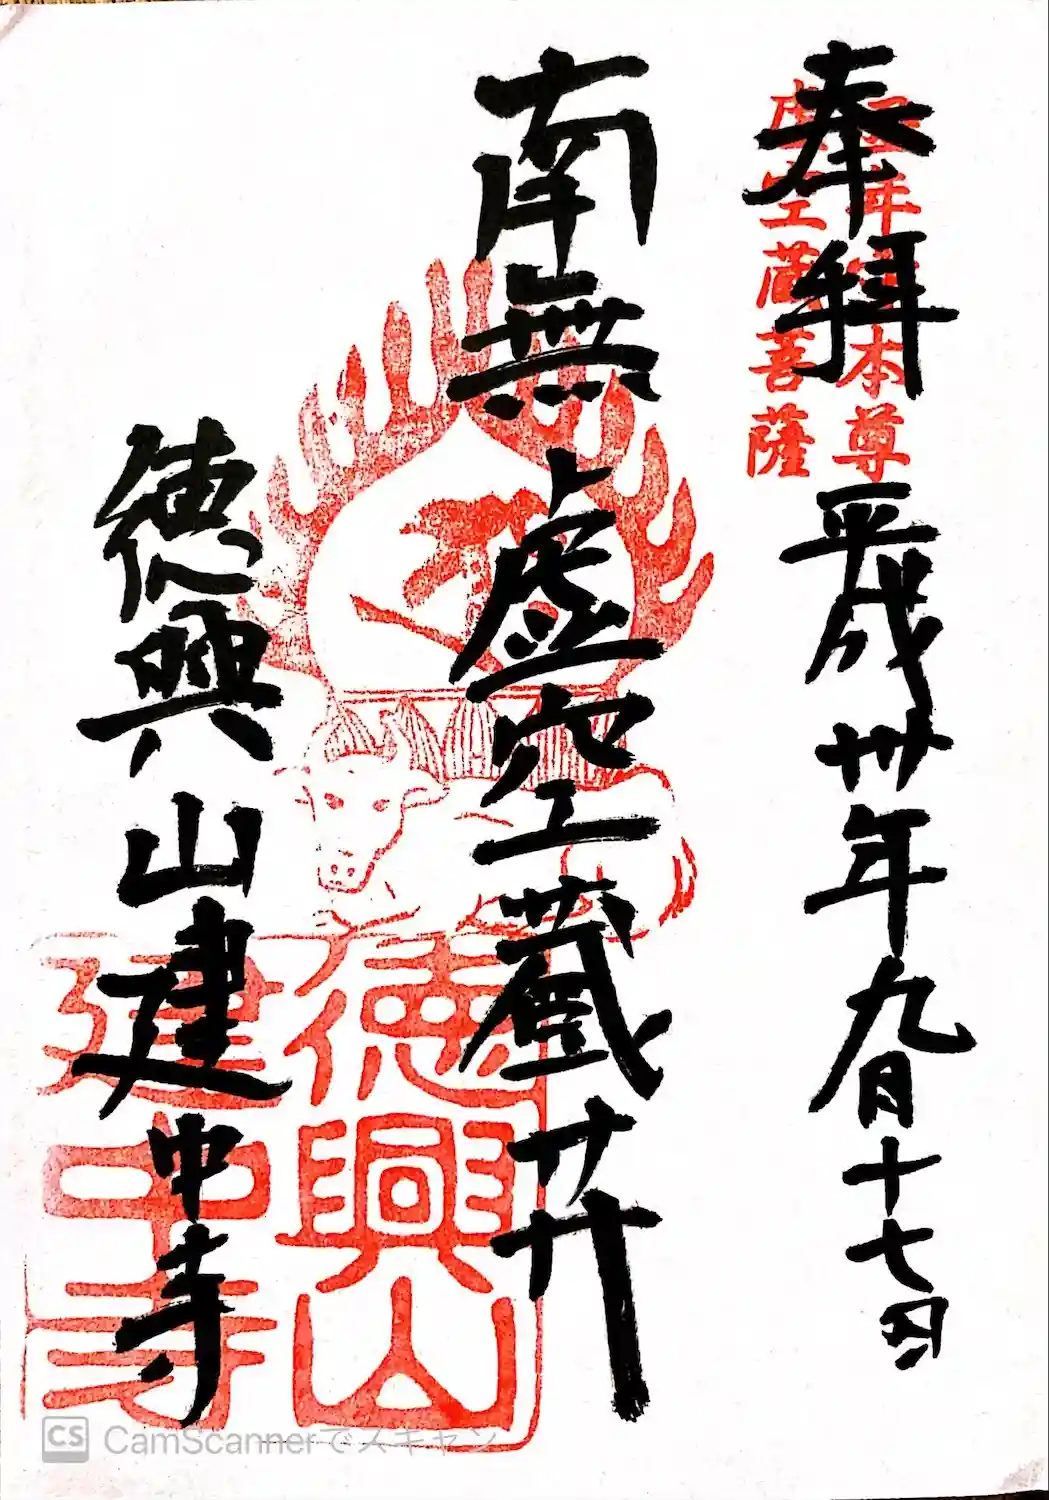 奉拝 平成卅年九月十七日
丑年守本尊
虚空蔵菩薩
南無虚空蔵𦬇
徳興山建中寺
徳興山
建中寺
CS CamScannerでスキャン